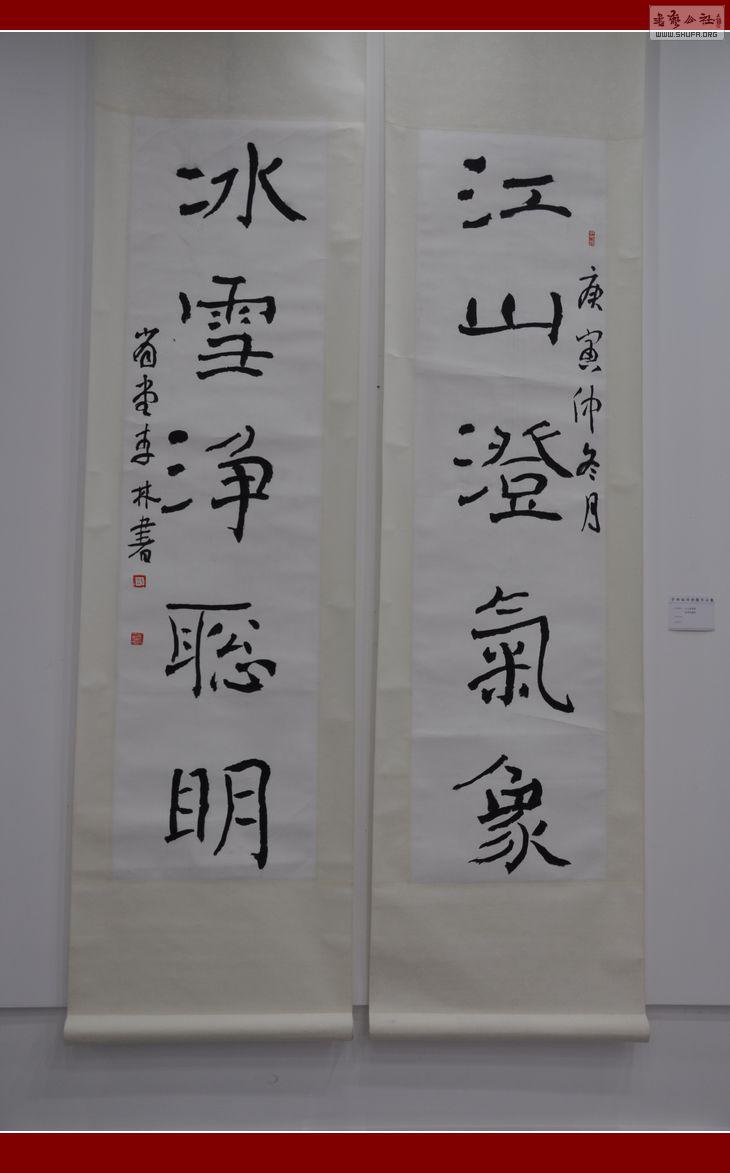 江山澄氣象
庚寅仲冬月
冰雪淨聰明
省堂李林書
書藝公社
WWW.SHUFA.ORG